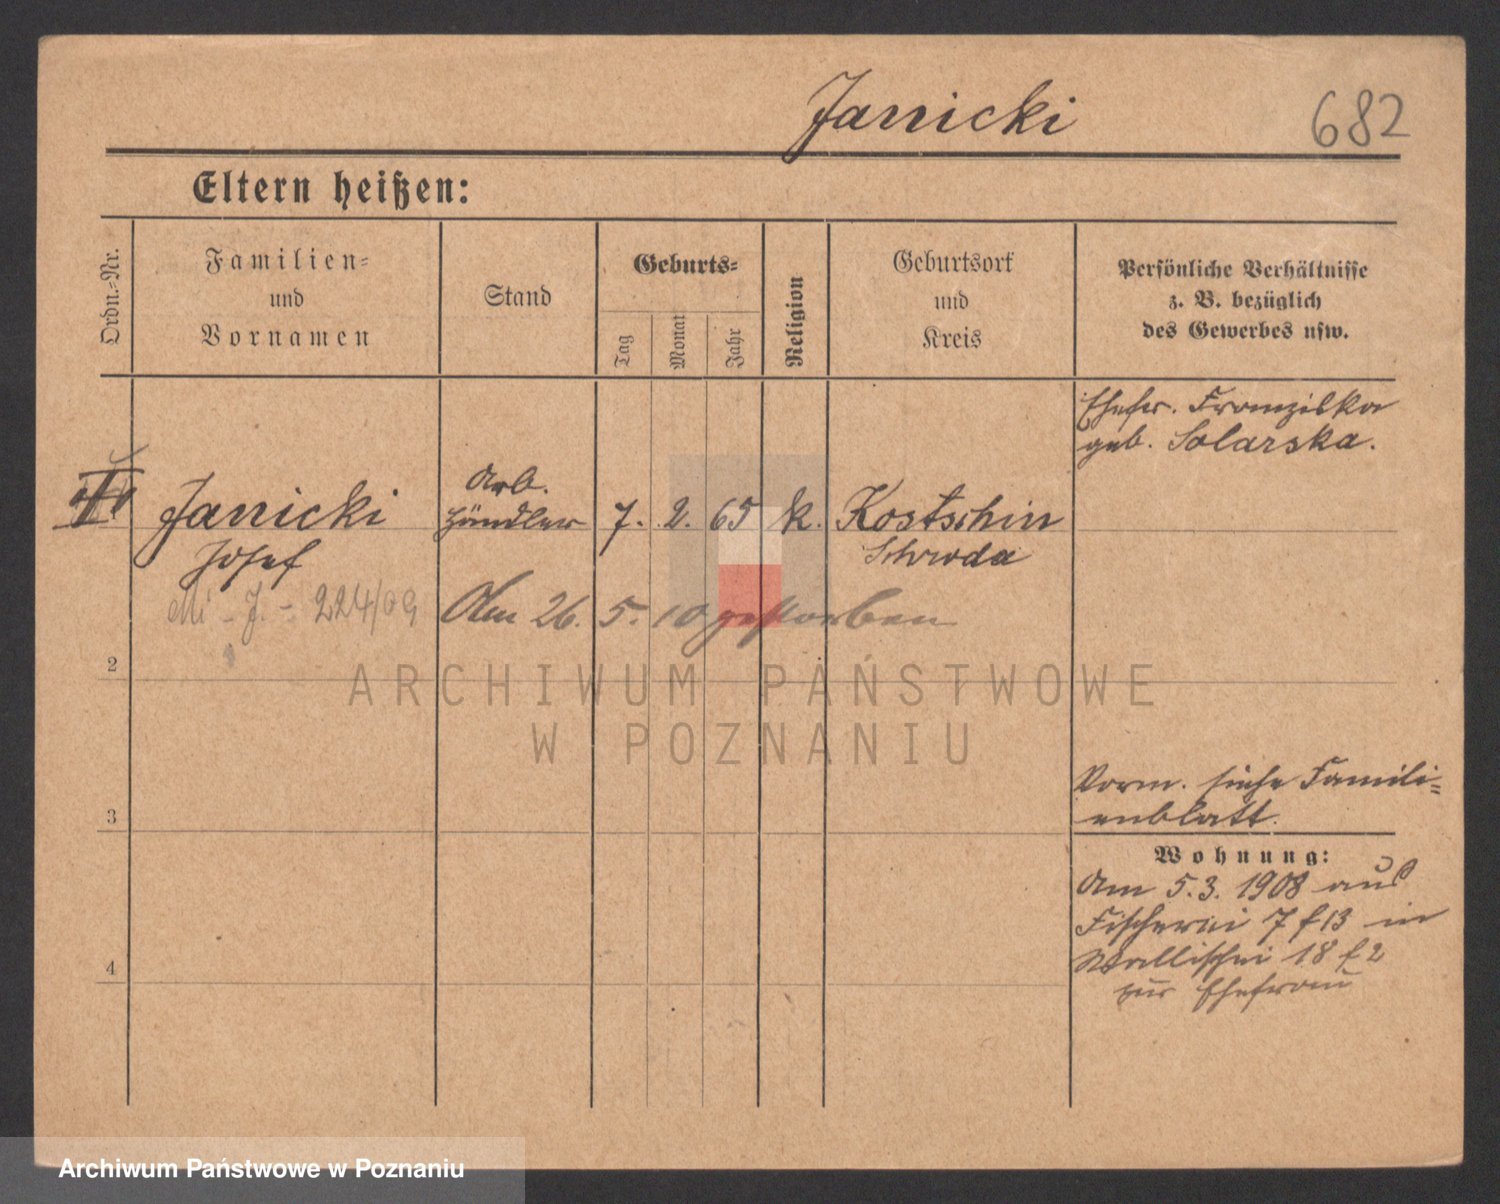 Janicki
682
Eltern heißen:
Ordn.-Nr.
Familien-
und
Vornamen
Stand
Geburts-
Tag
Monat
Jahr
Religion
Geburtsort
und
Kreis
Persönliche Verhältnisse
z. B. bezüglich
des Gewerbes usw.
Ehefr. Franziska
geb. Solarska.
Janicki
Josef
Arb.
Händler
7. 2. 65 k.
Kostschin
Schroda
224/09
Am 26. 5. 10 gestorben
2
3
4
Vorm. siehe Famili-
enblatt.
Wohnung:
Am 5.3. 1908 aus
Fischerei 7 f 13 in
Wallischei 18 f 2
zur Ehefrau
ARCHIWUM PAŃSTWOWE
W POZNANIU
Archiwum Państwowe w Poznaniu